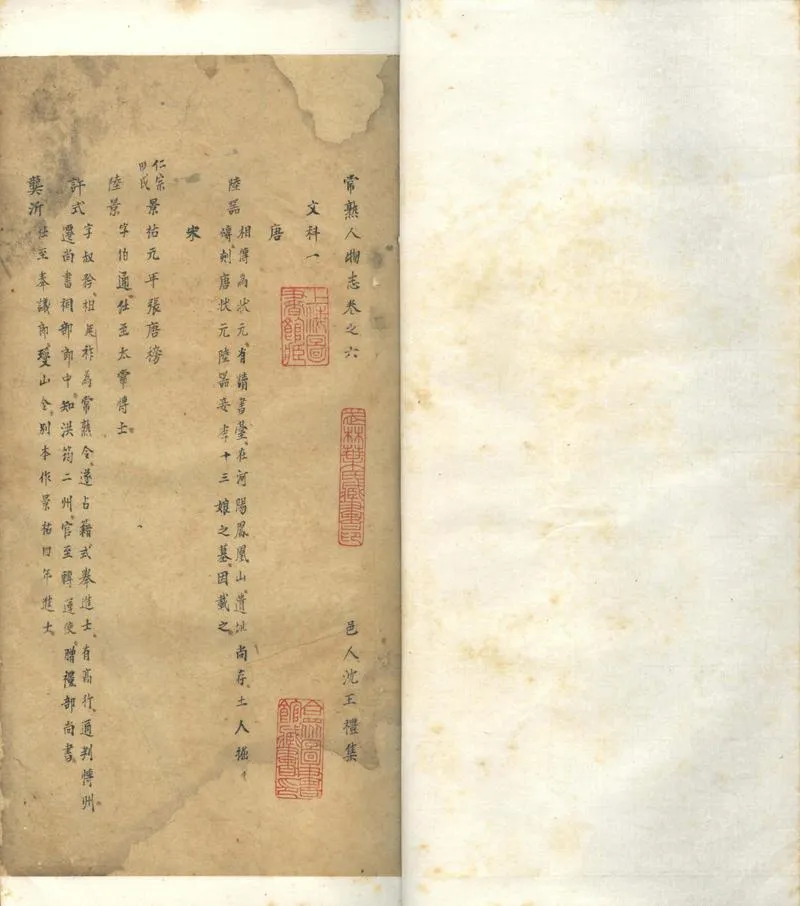 常熟人物志卷之六
邑人沈王禮集
文科一
唐
陸器
相傳為狀元有讀書臺在河陽鳳凰山遺址尚存土人掘
磚刻唐狀元陸器妾李十三娘之墓因載之
宋
仁宗
景祐元年張唐榜
陸景
字伯通仕至太常博士
許式
字叔矜祖延祚為常熟令遂占籍式舉進士有高行通判
州
遷尚書祠部郎中知洪筠二州官至轉運使贈禮部尚書
龔沂
仕至奉議郎
山令別本作景祐四年進士
上海圖書館藏
武林葉氏藏書印
合眾圖書館藏書印